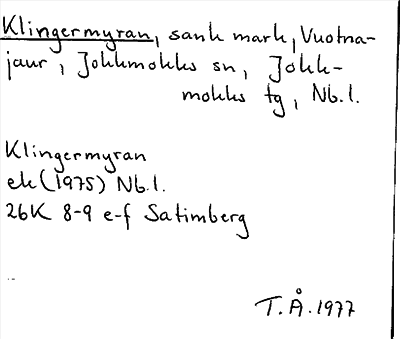 Klingermyran, sank mark, Vuotna-
jaur, Jokkmokks sn, Jokk-
mokks tg, Nb.l.
Klingermyran
ek (1975) Nb.l.
26K 8-9 e-f Satimberg
T.Å. 1977